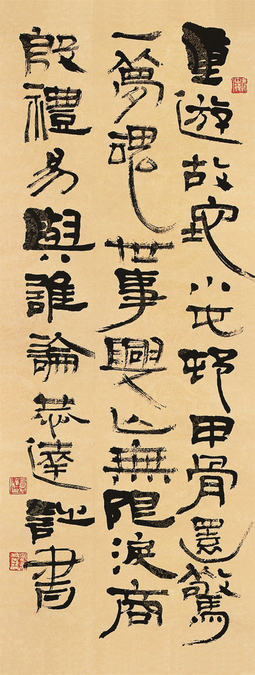 重遊故地小屯邨甲骨還驚
一夢魂世事興亡無限淚商
殷禮易與誰論恭達詩書